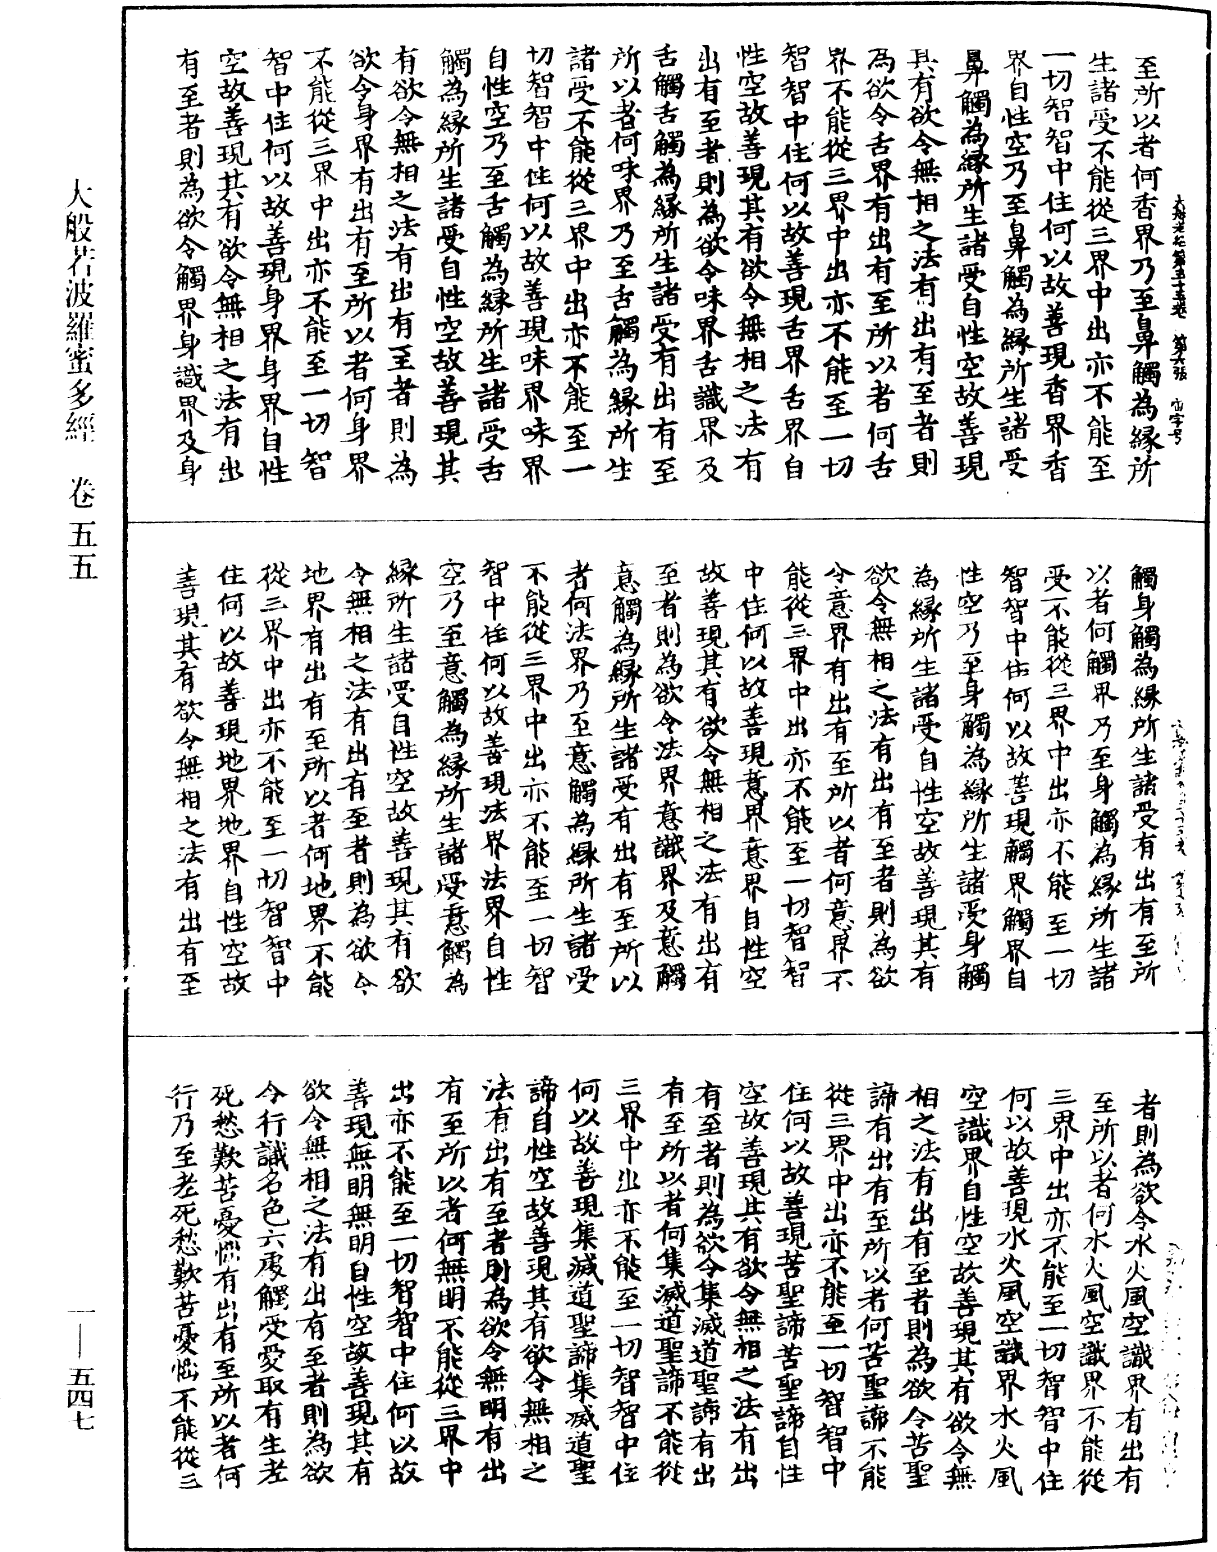 大般若波羅蜜多經　卷五五
一—五四七
至所以者何香界乃至鼻觸為緣所
生諸受不能從三界中出亦不能至
一切智智中住何以故善現香界香
界自性空乃至鼻觸為緣所生諸受
鼻觸為緣所生諸受自性空故善現
其有欲令無相之法有出有至者則
為欲令舌界有出有至所以者何舌
界不能從三界中出亦不能至一切
智智中住何以故善現舌界舌界自
性空故善現其有欲令無相之法有
出有至者則為欲令味界舌識界及
舌觸舌觸為緣所生諸受有出有至
所以者何味界乃至舌觸為緣所生
諸受不能從三界中出亦不能至一
切智智中住何以故善現味界味界
自性空乃至舌觸為緣所生諸受舌
觸為緣所生諸受自性空故善現其
有欲令無相之法有出有至者則為
欲令身界有出有至所以者何身界
不能從三界中出亦不能至一切智
智中住何以故善現身界身界自性
空故善現其有欲令無相之法有出
有至者則為欲令觸界身識界及身
觸身觸為緣所生諸受有出有至所
以者何觸界乃至身觸為緣所生諸
受不能從三界中出亦不能至一切
智智中住何以故善現觸界觸界自
性空乃至身觸為緣所生諸受身觸
為緣所生諸受自性空故善現其有
欲令無相之法有出有至者則為欲
令意界有出有至所以者何意界不
能從三界中出亦不能至一切智智
中住何以故善現意界意界自性空
故善現其有欲令無相之法有出有
至者則為欲令法界意識界及意觸
意觸為緣所生諸受有出有至所以
者何法界乃至意觸為緣所生諸受
不能從三界中出亦不能至一切智
智中住何以故善現法界法界自性
空乃至意觸為緣所生諸受意觸為
緣所生諸受自性空故善現其有欲
令無相之法有出有至者則為欲令
地界有出有至所以者何地界不能
從三界中出亦不能至一切智智中
住何以故善現地界地界自性空故
善現其有欲令無相之法有出有至
者則為欲令水火風空識界有出有
至所以者何水火風空識界不能從
三界中出亦不能至一切智智中住
何以故善現水火風空識界水火風
空識界自性空故善現其有欲令無
相之法有出有至者則為欲令苦聖
諦有出有至所以者何苦聖諦不能
從三界中出亦不能至一切智智中
住何以故善現苦聖諦苦聖諦自性
空故善現其有欲令無相之法有出
有至者則為欲令集滅道聖諦有出
有至所以者何集滅道聖諦不能從
三界中出亦不能至一切智智中住
何以故善現集滅道聖諦集滅道聖
諦自性空故善現其有欲令無相之
法有出有至者則為欲令無明有出
有至所以者何無明不能從三界中
出亦不能至一切智智中住何以故
善現無明無明自性空故善現其有
欲令無相之法有出有至者則為欲
令行識名色六處觸受愛取有生老
死愁歎苦憂惱有出有至所以者何
行乃至老死愁歎苦憂惱不能從三